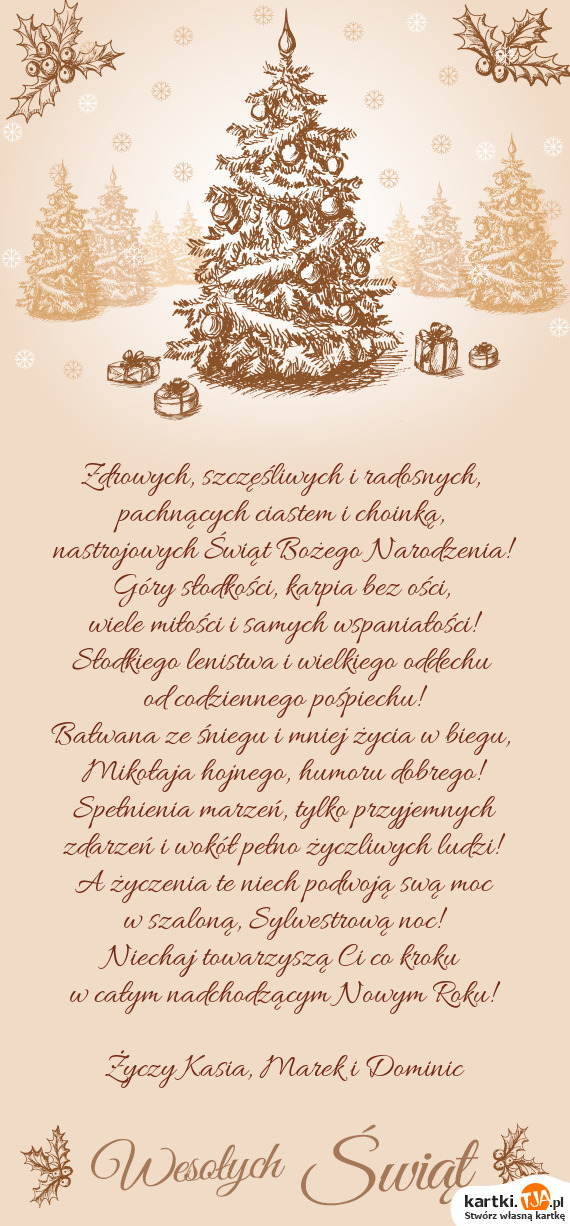 Zdrowych, szczęśliwych i radosnych,
pachnących ciastem i choinką,
nastrojowych Świąt Bożego Narodzenia!
Góry słodkości, karpia bez ości,
wiele miłości i samych wspaniałości!
Słodkiego lenistwa i wielkiego oddechu
od codziennego pośpiechu!
Bałwana ze śniegu i mniej życia w biegu,
Mikołaja hojnego, humoru dobrego!
Spełnienia marzeń, tylko przyjemnych
zdarzeń i wokół pełno życzliwych ludzi!
A życzenia te niech podwoją swą moc
w szaloną, Sylwestrową noc!
Niechaj towarzyszą Ci co kroku
w całym nadchodzącym Nowym Roku!
Życzy Kasia, Marek i Dominic
Wesołych Świąt
kartki.TJA.pl
Stwórz własną kartkę